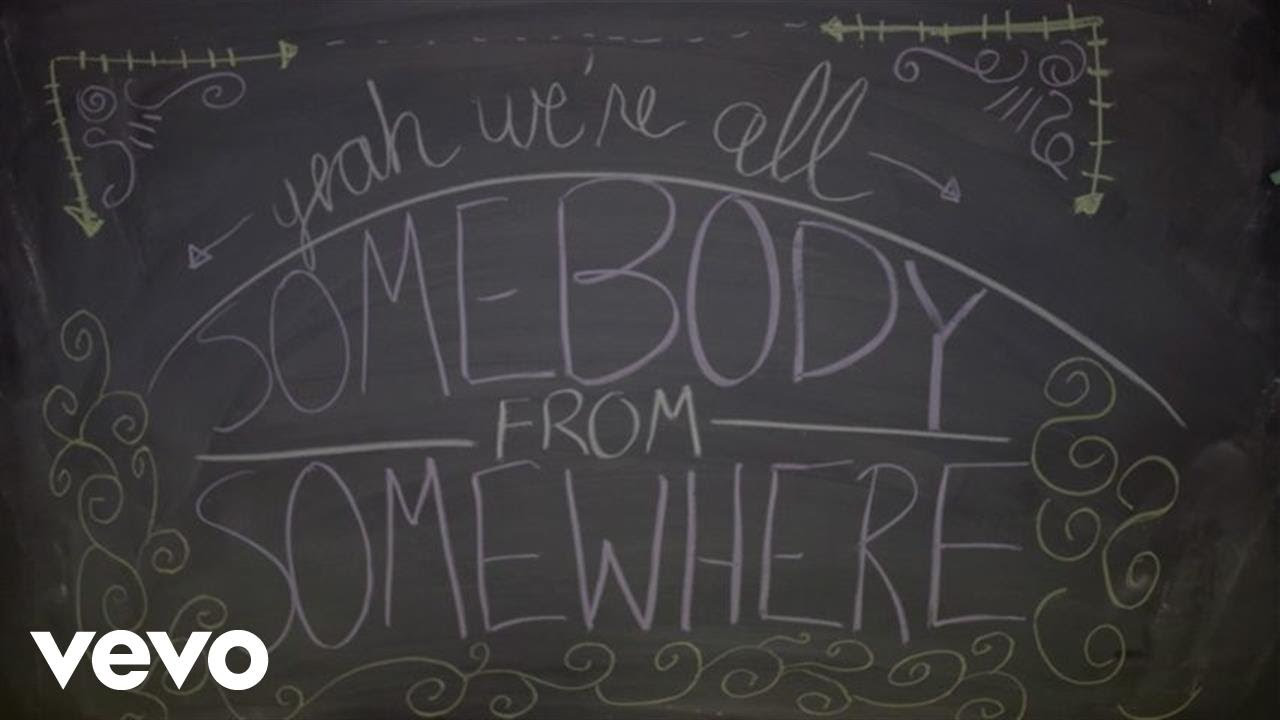 yeah we're all
SOMEBODY
FROM
SOMEWHERE
vevo